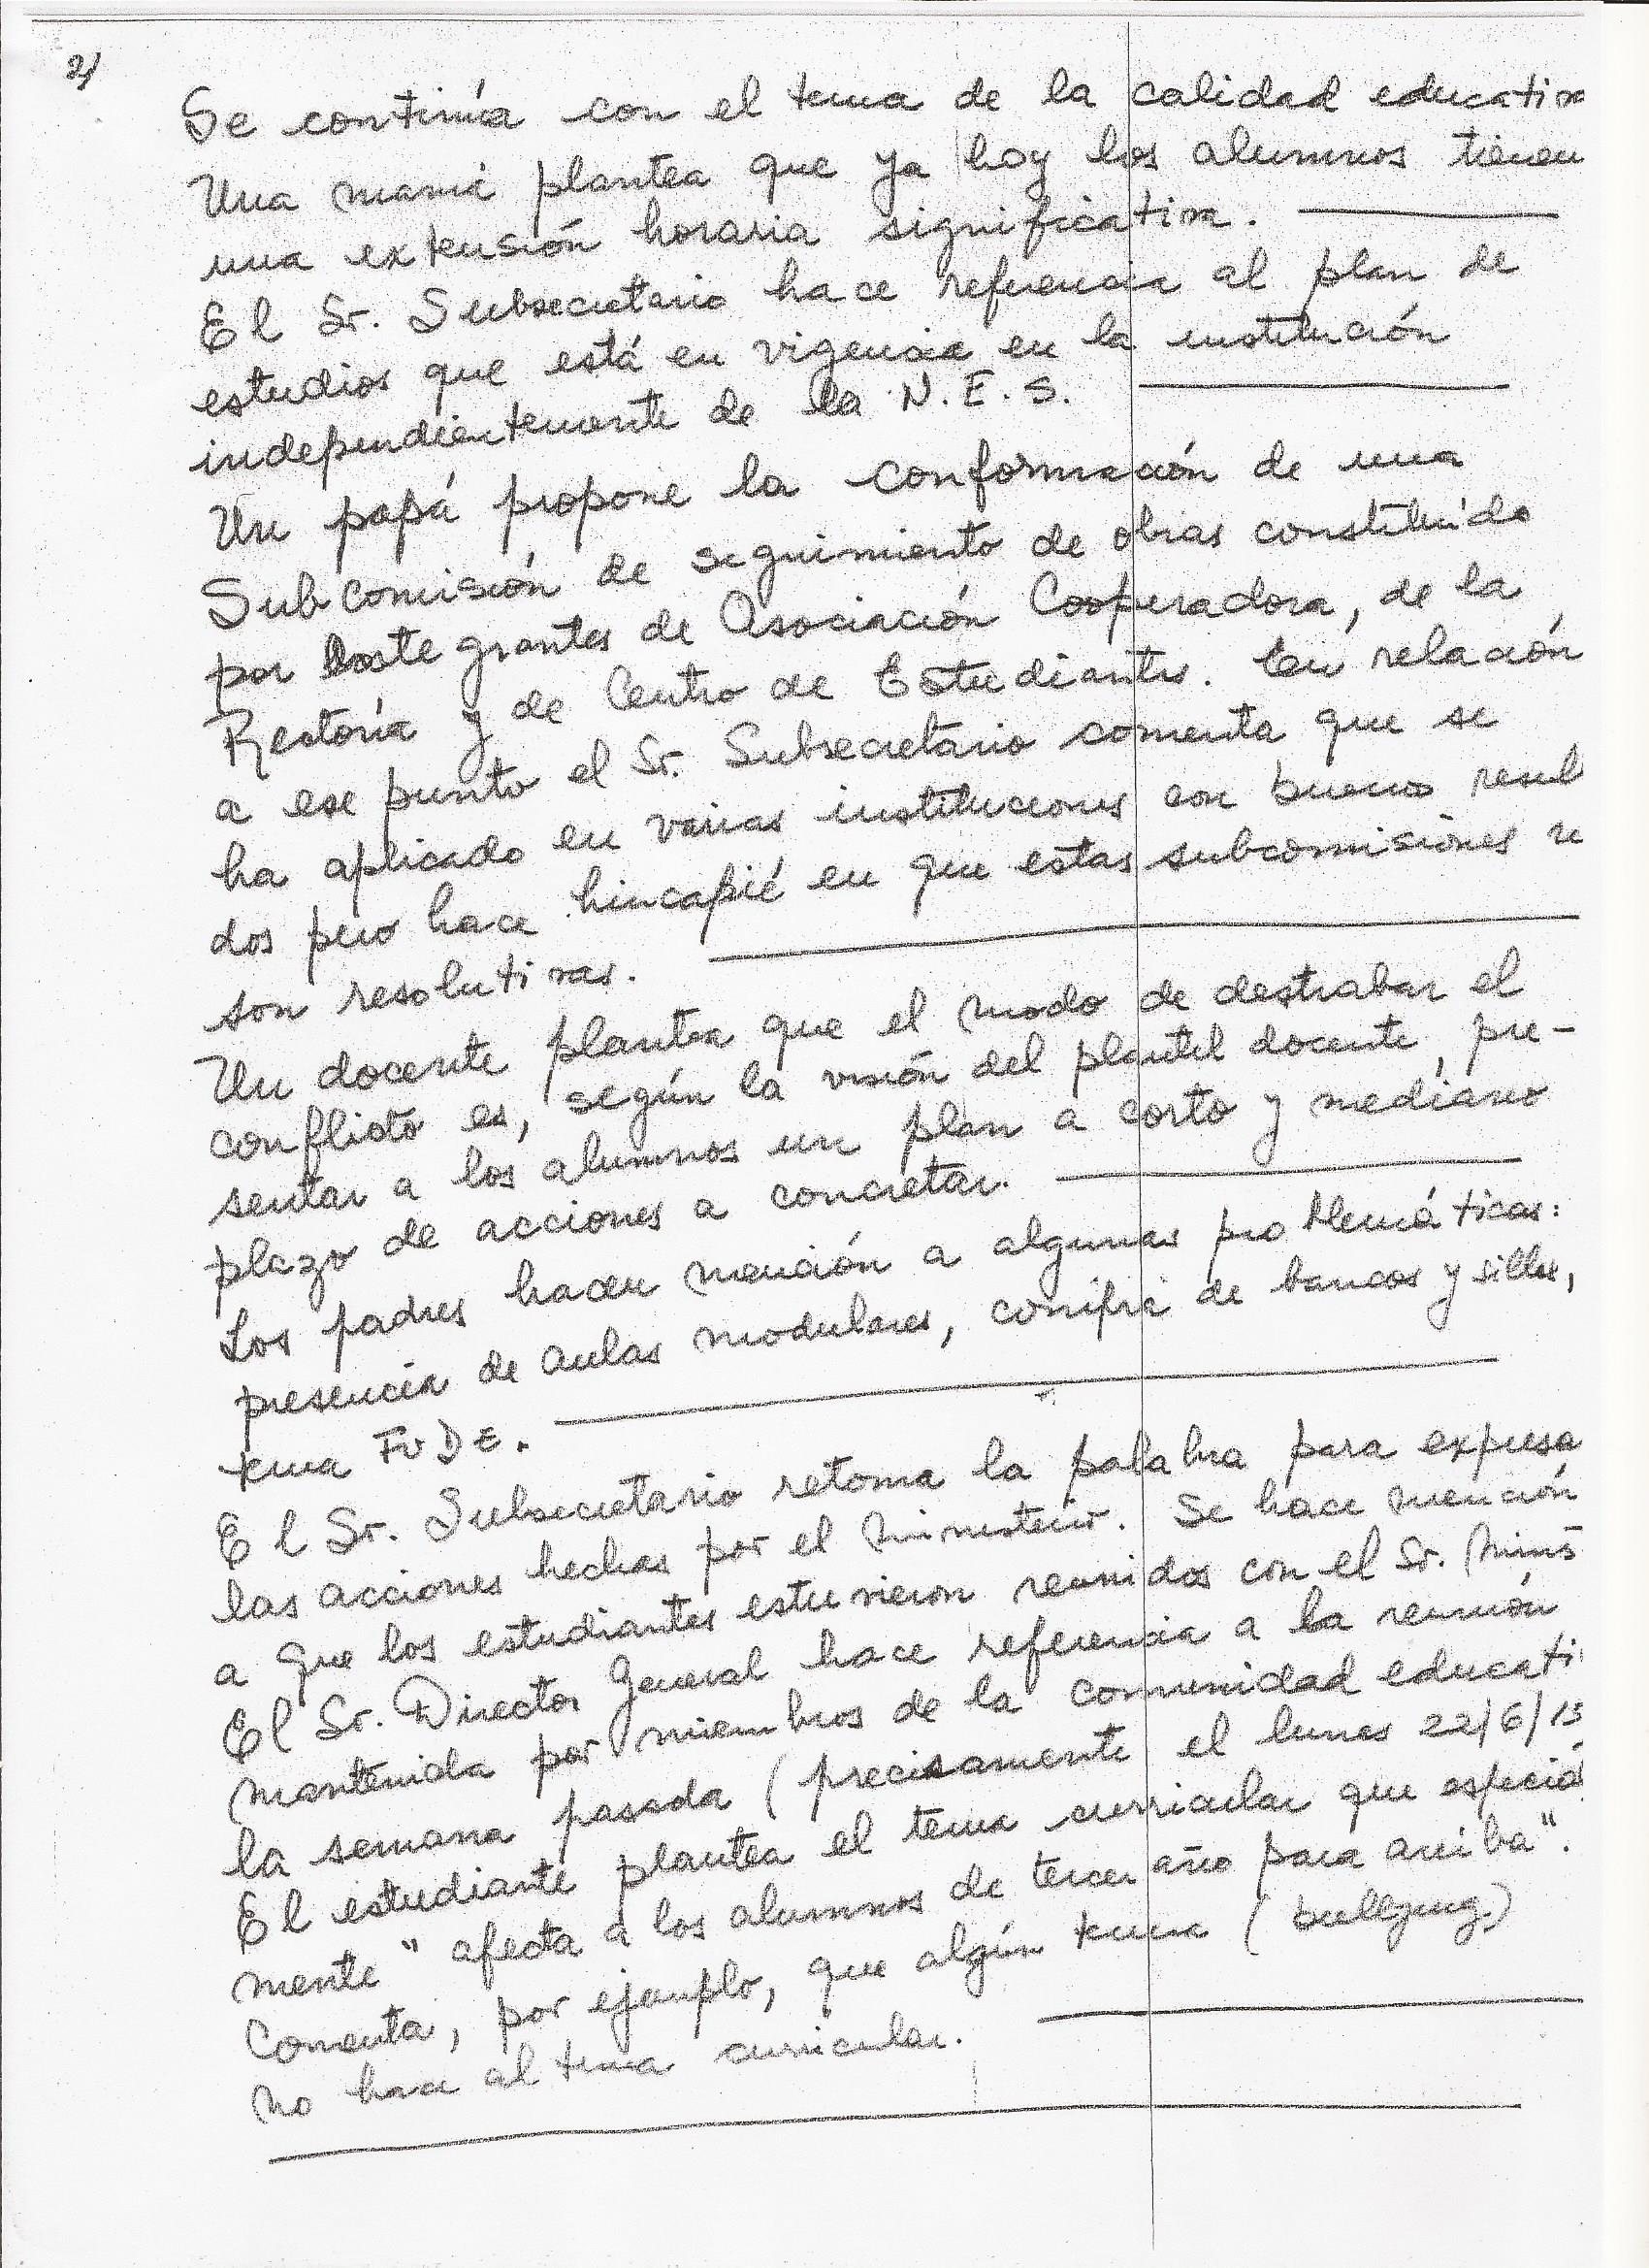 2/
Se continúa con el tema de la calidad educativa
Una mamá plantea que ya hoy los alumnos tienen
una extensión horaria significativa.
El Sr. Subsecretario hace referencia al plan de
estudios que está en vigencia en la institución
independientemente de la N.E.S.
Un papá propone la conformación de una
Subcomisión de seguimiento de obras constituído
por integrantes de Asociación Cooperadora, de la
Rectoría y de Centro de Estudiantes. En relación
a ese punto el Sr. Subsecretario comenta que se
ha aplicado en varias instituciones con buenos resul
dos pero hace hincapié en que estas subcomisiones n
son resolutivas.
Un docente plantea que el modo de destrabar el
conflicto es, según la visión del plantel docente, pre-
sentar a los alumnos un plan a corto y mediano
plazo de acciones a concretar.
Los padres hacen mención a algunas problemáticas:
presencia de aulas modulares, compra de bancos y sillas,
tema FuDE.
El Sr. Subsecretario retoma la palabra para expresa
las acciones hechas por el Ministerio. Se hace mención
a que los estudiantes estuvieron reunidos con el Sr. Minis
El Sr. Director General hace referencia a la reunión
mantenida por miembros de la comunidad educati
la semana pasada (precisamente el lunes 22/6/15
El estudiante plantea el tema curricular que especial
mente "afecta a los alumnos de tercer año para arriba".
Comenta, por ejemplo, que algún tema (bullying)
no hace al tema curricular.